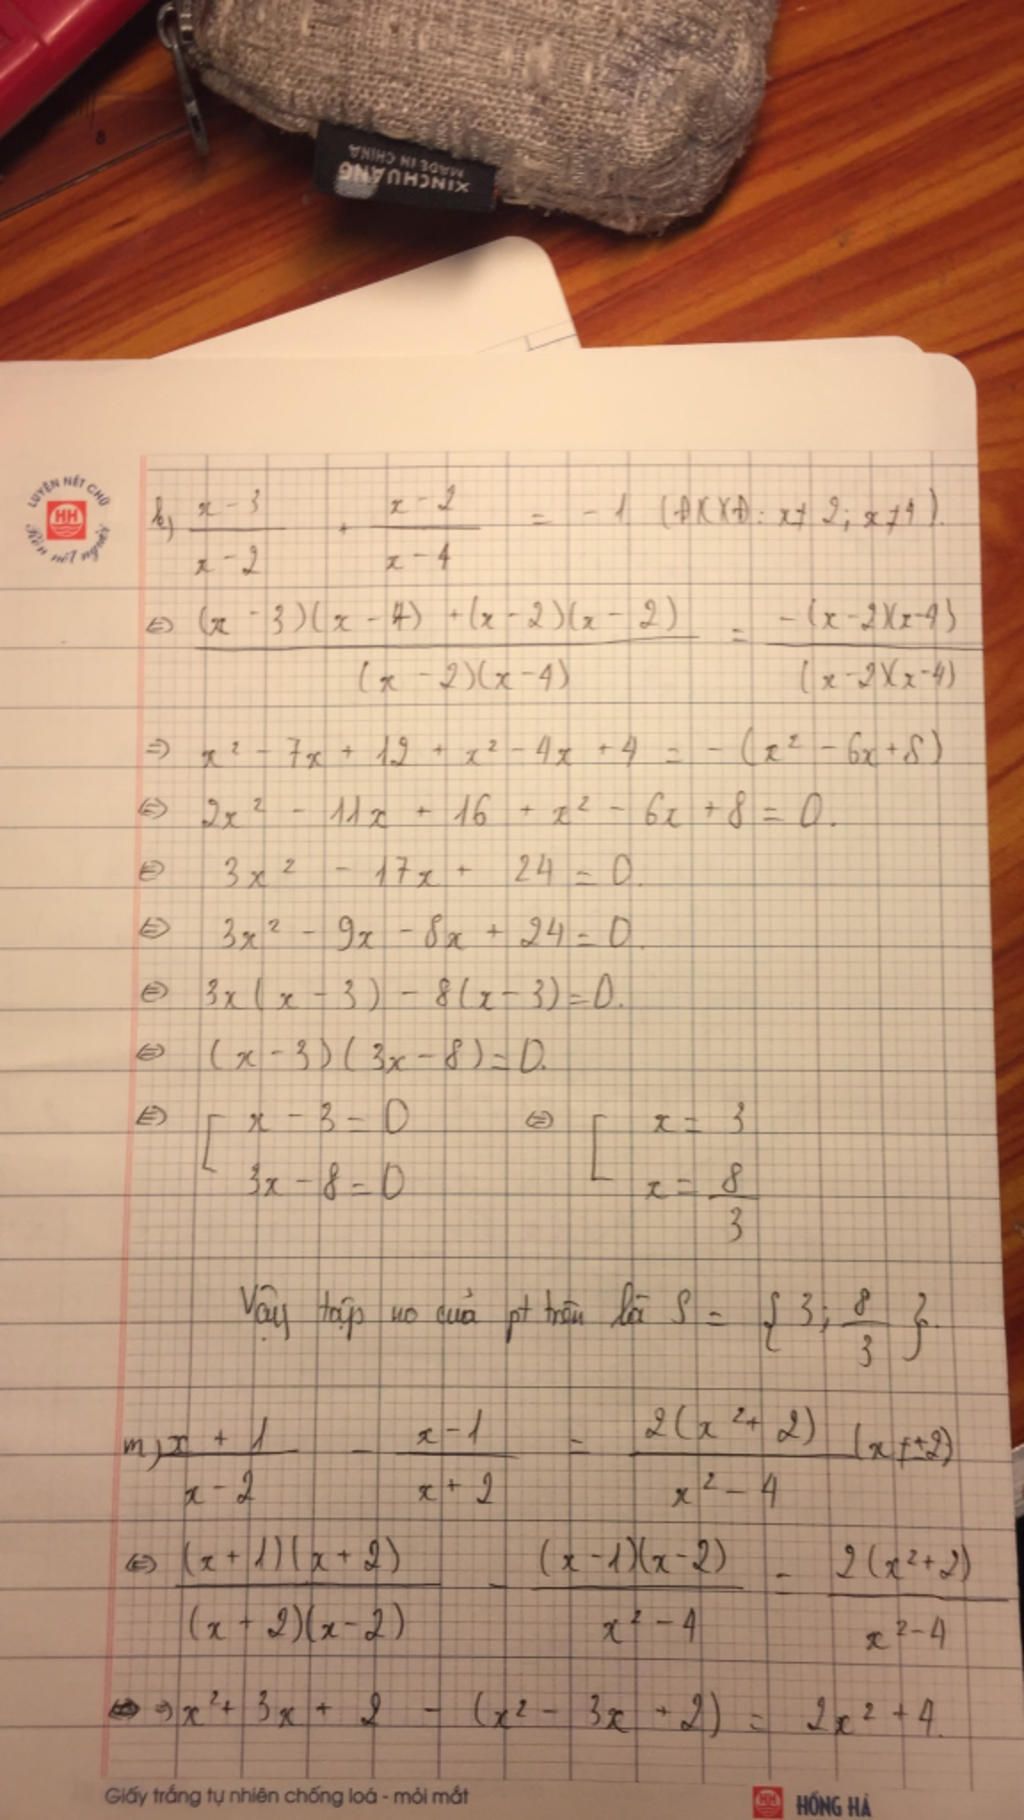 XINCHUANG
MADE IN CHINA
LUYỆN NÉT CHỮ
HH
Rèn nết người
k) (x - 3)/(x - 2) + (x - 2)/(x - 4) = -1 (ĐKXĐ: x ≠ 2; x ≠ 4).
⇔ ((x - 3)(x - 4) + (x - 2)(x - 2))/((x - 2)(x - 4)) = (-(x - 2)(x - 4))/((x - 2)(x - 4))
⇒ x² - 7x + 12 + x² - 4x + 4 = -(x² - 6x + 8)
⇔ 2x² - 11x + 16 + x² - 6x + 8 = 0.
⇔ 3x² - 17x + 24 = 0.
⇔ 3x² - 9x - 8x + 24 = 0.
⇔ 3x(x - 3) - 8(x - 3) = 0.
⇔ (x - 3)(3x - 8) = 0.
⇔ [ x - 3 = 0 ⇔ [ x = 3
3x - 8 = 0 x = 8/3
Vậy tập no của pt trên là S = {3; 8/3}.
m) (x + 1)/(x - 2) - (x - 1)/(x + 2) = 2(x² + 2)/(x² - 4) (x ≠ ±2)
⇔ ((x + 1)(x + 2))/((x + 2)(x - 2)) - ((x - 1)(x - 2))/(x² - 4) = 2(x² + 2)/(x² - 4)
⇒ x² + 3x + 2 - (x² - 3x + 2) = 2x² + 4.
Giấy trắng tự nhiên chống loá - mỏi mắt
HH HỒNG HÀ